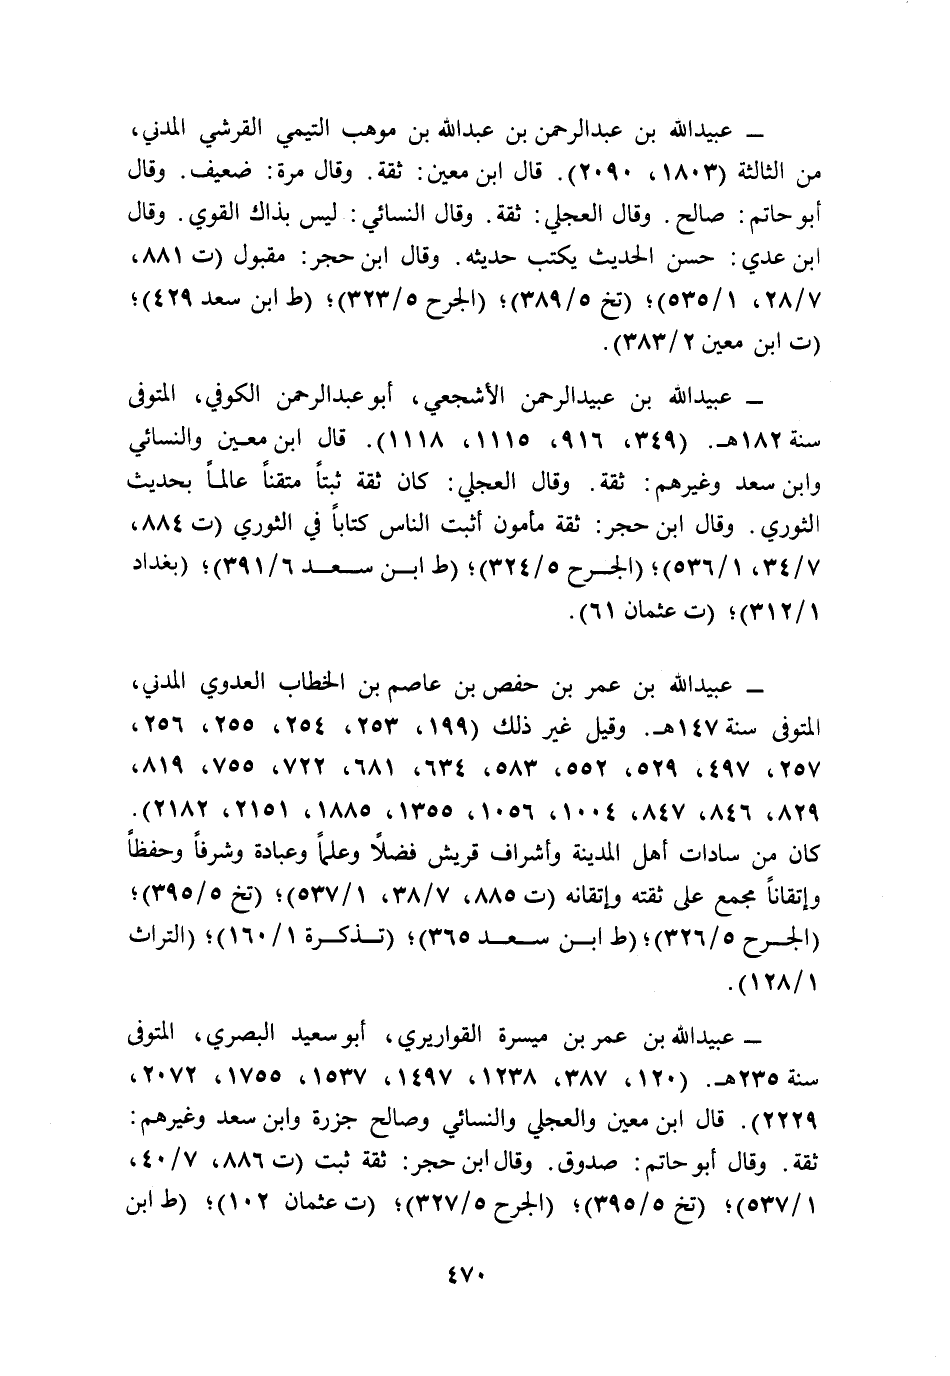 ــ عبيدالله بن عبدالرحمن بن عبدالله بن موهب التيمي القرشي المدني،
من الثالثة (١٨٠٣، ٢٠٩٠). قال ابن معين: ثقة. وقال مرة: ضعيف. وقال
أبو حاتم: صالح. وقال العجلي: ثقة. وقال النسائي: ليس بذاك القوي. وقال
ابن عدي: حسن الحديث يكتب حديثه. وقال ابن حجر: مقبول (ت ٨٨١،
٢٨/٧، ٥٣٥/١)؛ (تخ ٣٨٩/٥)؛ (الجرح ٣٢٣/٥)؛ (ط ابن سعد ٤٢٩)؛
(ت ابن معين ٣٨٣/٢).
ــ عبيدالله بن عبيدالرحمن الأشجعي، أبو عبدالرحمن الكوفي، المتوفى
سنة ١٨٢هـ. (٣٤٩، ٩١٦، ١١١٥، ١١١٨). قال ابن معين والنسائي
وابن سعد وغيرهم: ثقة. وقال العجلي: كان ثقة ثبتاً متقناً عالماً بحديث
الثوري. وقال ابن حجر: ثقة مأمون أثبت الناس كتاباً في الثوري (ت ٨٨٤،
٣٤/٧، ٥٣٦/١)؛ (الجرح ٣٢٤/٥)؛ (ط ابن سعد ٣٩١/٦)؛ (بغداد
٣١٢/١)؛ (ت عثمان ٦١).
ــ عبيدالله بن عمر بن حفص بن عاصم بن الخطاب العدوي المدني،
المتوفى سنة ١٤٧هـ. وقيل غير ذلك (١٩٩، ٢٥٣، ٢٥٤، ٢٥٥، ٢٥٦،
٢٥٧، ٤٩٧، ٥٢٩، ٥٥٢، ٥٨٣، ٦٣٤، ٦٨١، ٧٢٢، ٧٥٥، ٨١٩،
٨٢٩، ٨٤٦، ٨٤٧، ١٠٠٤، ١٠٥٦، ١٣٥٥، ١٨٨٥، ٢١٥١، ٢١٨٢).
كان من سادات أهل المدينة وأشراف قريش فضلاً وعلماً وعبادة وشرفاً وحفظاً
وإتقاناً مجمع على ثقته وإتقانه (ت ٨٨٥، ٣٨/٧، ٥٣٧/١)؛ (تخ ٣٩٥/٥)؛
(الجرح ٣٢٦/٥)؛ (ط ابن سعد ٣٦٥)؛ (تذكرة ١٦٠/١)؛ (التراث
١٢٨/١).
ــ عبيدالله بن عمر بن ميسرة القواريري، أبو سعيد البصري، المتوفى
سنة ٢٣٥هـ. (١٢٠، ٣٨٧، ١٢٣٨، ١٤٩٧، ١٥٣٧، ١٧٥٥، ٢٠٧٢،
٢٢٢٩). قال ابن معين والعجلي والنسائي وصالح جزرة وابن سعد وغيرهم:
ثقة. وقال أبو حاتم: صدوق. وقال ابن حجر: ثقة ثبت (ت ٨٨٦، ٤٠/٧،
٥٣٧/١)؛ (تخ ٣٩٥/٥)؛ (الجرح ٣٢٧/٥)؛ (ت عثمان ١٠٢)؛ (ط ابن
٤٧٠